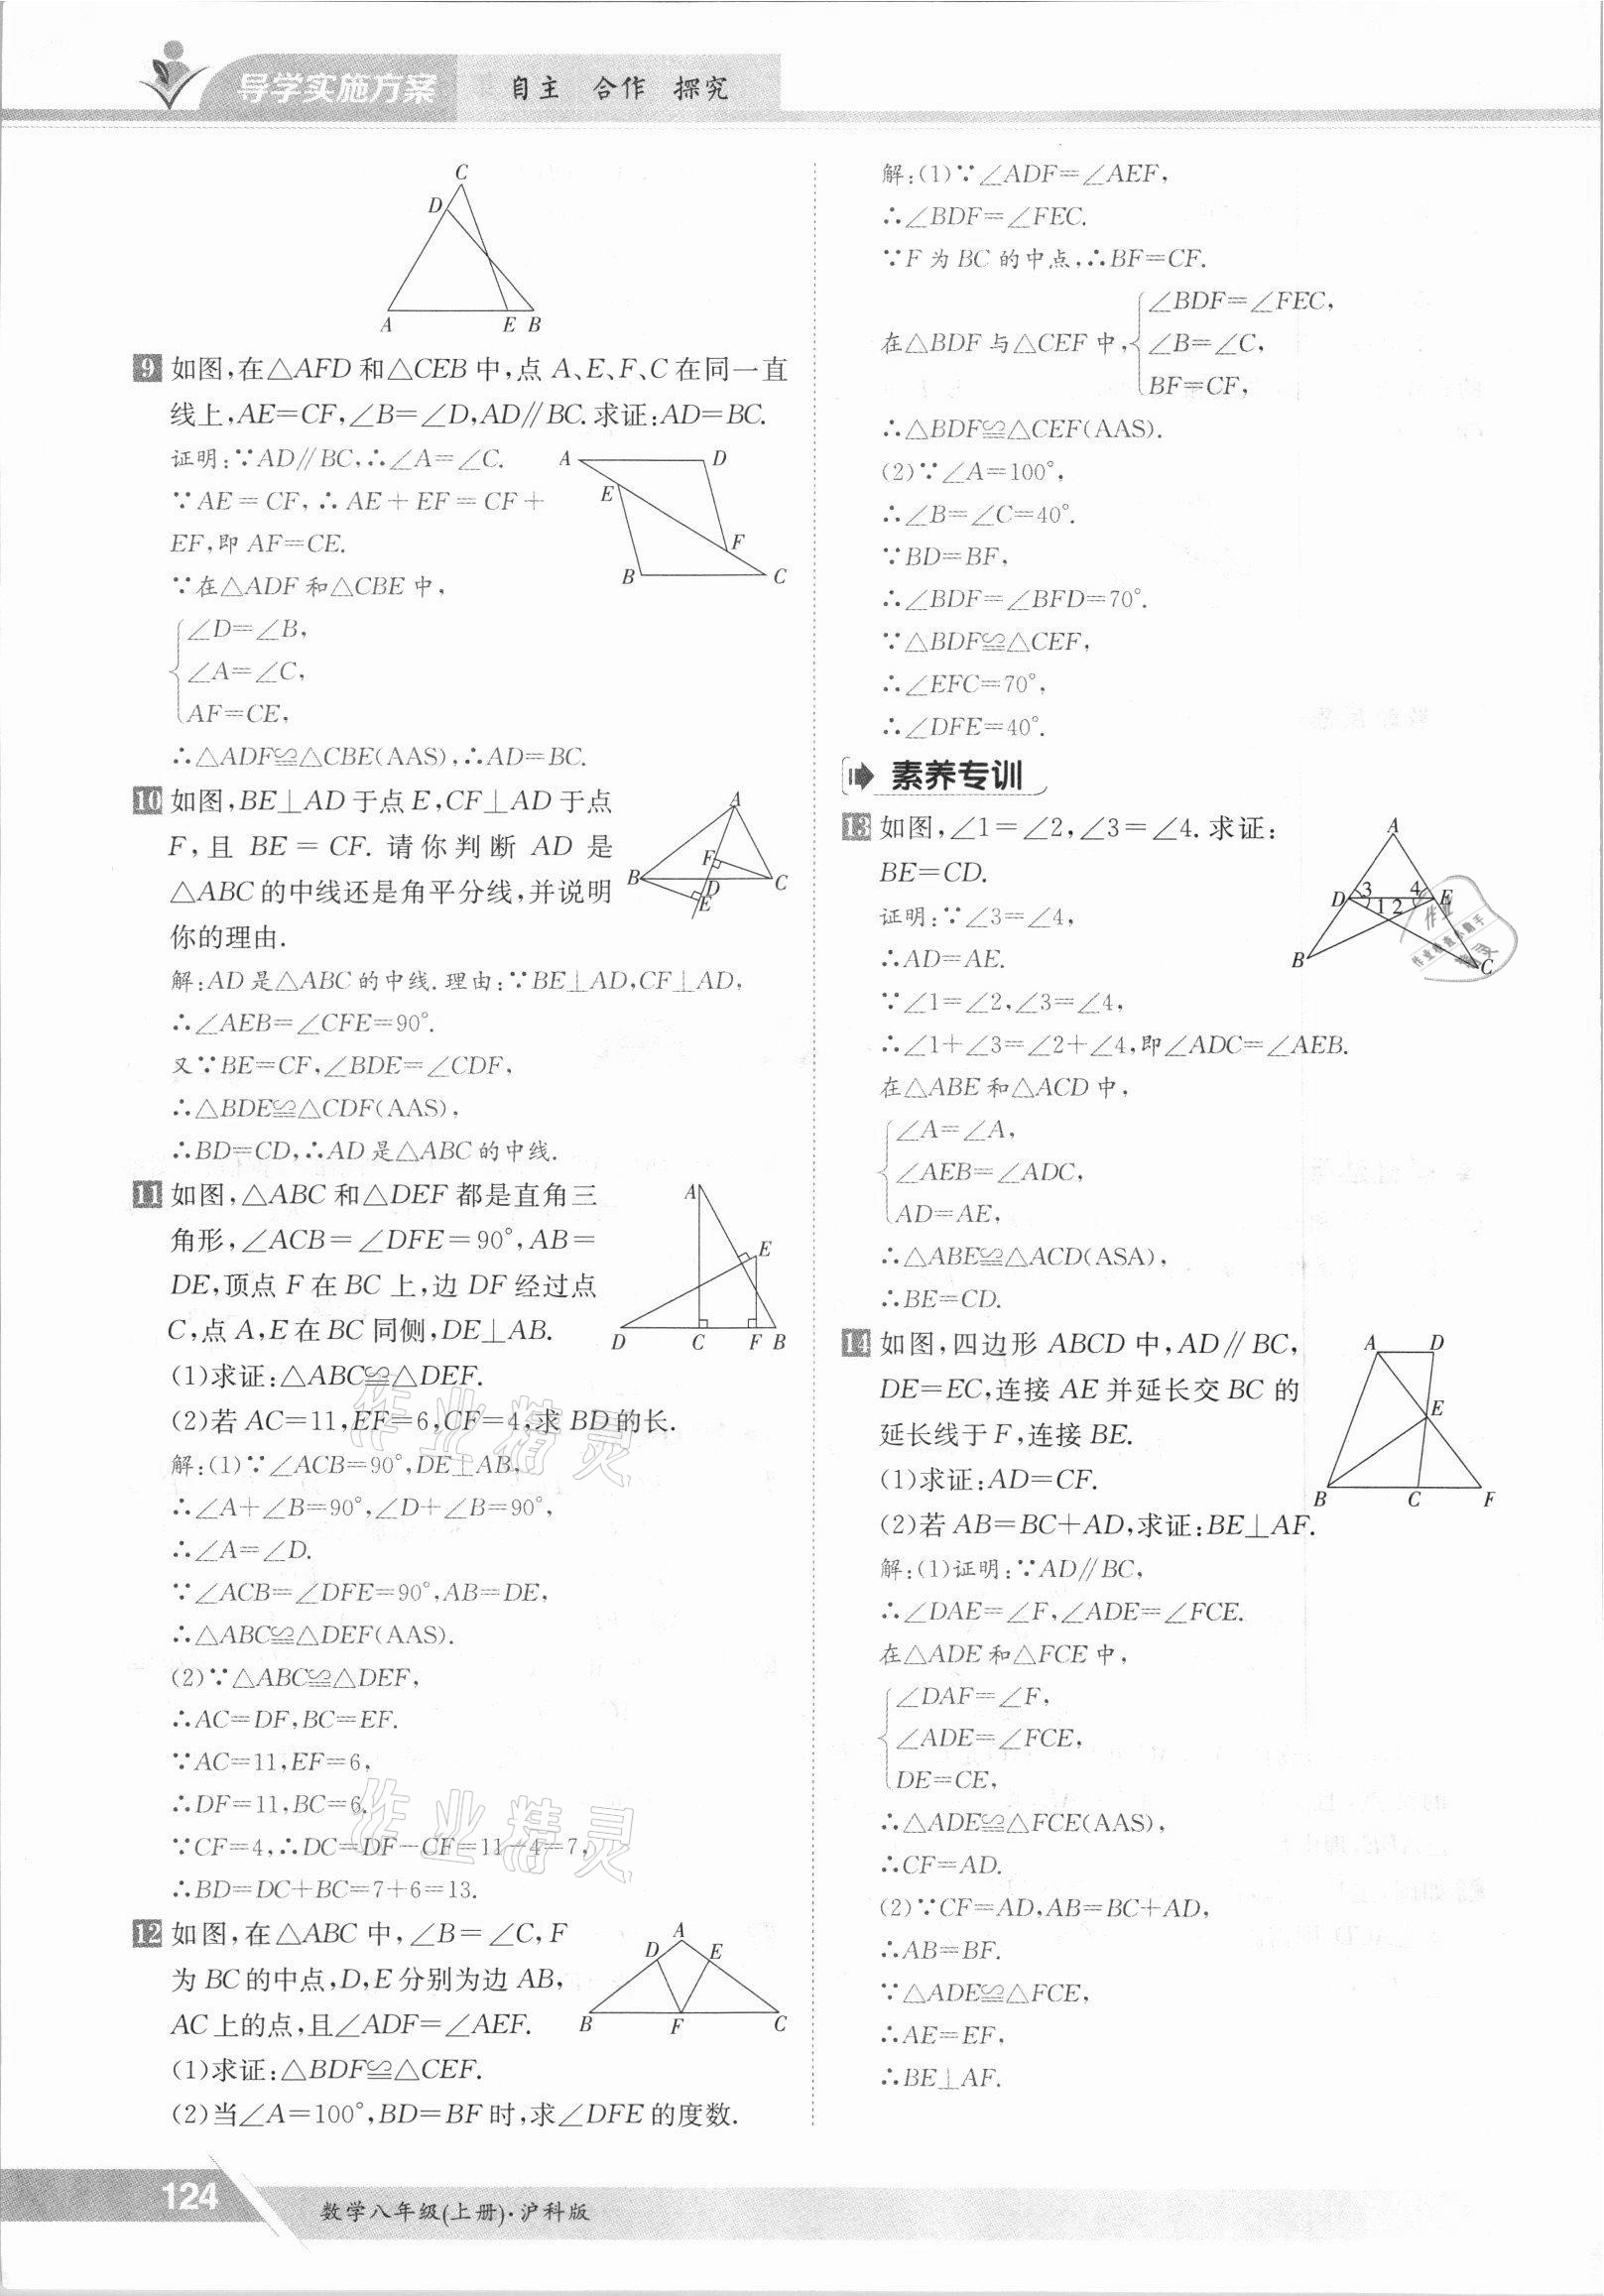 导学实施方案 自主 合作 探究
C
D
A E B
9 如图,在△AFD 和△CEB 中,点 A、E、F、C 在同一直
线上,AE=CF,∠B=∠D,AD∥BC.求证:AD=BC.
证明:∵AD∥BC,∴∠A=∠C.
∵AE=CF,∴AE+EF=CF+
EF,即 AF=CE.
∵在△ADF 和△CBE 中,
∠D=∠B,
∠A=∠C,
AF=CE,
∴△ADF≌△CBE(AAS),∴AD=BC.
A D
E
F
B C
10 如图,BE⊥AD 于点 E,CF⊥AD 于点
F,且 BE=CF.请你判断 AD 是
△ABC 的中线还是角平分线,并说明
你的理由.
A
F
B D C
E
解:AD 是△ABC 的中线.理由:∵BE⊥AD,CF⊥AD,
∴∠AEB=∠CFE=90°.
又∵BE=CF,∠BDE=∠CDF,
∴△BDE≌△CDF(AAS),
∴BD=CD,∴AD 是△ABC 的中线.
11 如图,△ABC 和△DEF 都是直角三
角形,∠ACB=∠DFE=90°,AB=
DE,顶点 F 在 BC 上,边 DF 经过点
C,点 A,E 在 BC 同侧,DE⊥AB.
A
E
D C F B
(1)求证:△ABC≌△DEF.
(2)若 AC=11,EF=6,CF=4,求 BD 的长.
解:(1)∵∠ACB=90°,DE⊥AB,
∴∠A+∠B=90°,∠D+∠B=90°,
∴∠A=∠D.
∵∠ACB=∠DFE=90°,AB=DE,
∴△ABC≌△DEF(AAS).
(2)∵△ABC≌△DEF,
∴AC=DF,BC=EF.
∵AC=11,EF=6,
∴DF=11,BC=6.
∵CF=4,∴DC=DF-CF=11-4=7,
∴BD=DC+BC=7+6=13.
作业精灵
作业精灵
12 如图,在△ABC 中,∠B=∠C,F
为 BC 的中点,D,E 分别为边 AB,
AC 上的点,且∠ADF=∠AEF.
A
D E
B F C
(1)求证:△BDF≌△CEF.
(2)当∠A=100°,BD=BF 时,求∠DFE 的度数.
解:(1)∵∠ADF=∠AEF,
∴∠BDF=∠FEC.
∵F 为 BC 的中点,∴BF=CF.
∠BDF=∠FEC,
在△BDF 与△CEF 中,∠B=∠C,
BF=CF,
∴△BDF≌△CEF(AAS).
(2)∵∠A=100°,
∴∠B=∠C=40°.
∵BD=BF,
∴∠BDF=∠BFD=70°.
∵△BDF≌△CEF,
∴∠EFC=70°,
∴∠DFE=40°.
素养专训
13 如图,∠1=∠2,∠3=∠4.求证:
BE=CD.
证明:∵∠3=∠4,
∴AD=AE.
∵∠1=∠2,∠3=∠4,
∴∠1+∠3=∠2+∠4,即∠ADC=∠AEB.
在△ABE 和△ACD 中,
∠A=∠A,
∠AEB=∠ADC,
AD=AE,
∴△ABE≌△ACD(ASA),
∴BE=CD.
A
D 3 4 E
1 2
B C
14 如图,四边形 ABCD 中,AD∥BC,
DE=EC,连接 AE 并延长交 BC 的
延长线于 F,连接 BE.
(1)求证:AD=CF.
(2)若 AB=BC+AD,求证:BE⊥AF.
A D
E
B C F
解:(1)证明:∵AD∥BC,
∴∠DAE=∠F,∠ADE=∠FCE.
在△ADE 和△FCE 中,
∠DAF=∠F,
∠ADE=∠FCE,
DE=CE,
∴△ADE≌△FCE(AAS),
∴CF=AD.
(2)∵CF=AD,AB=BC+AD,
∴AB=BF.
∵△ADE≌△FCE,
∴AE=EF,
∴BE⊥AF.
124 数学八年级(上册)·沪科版